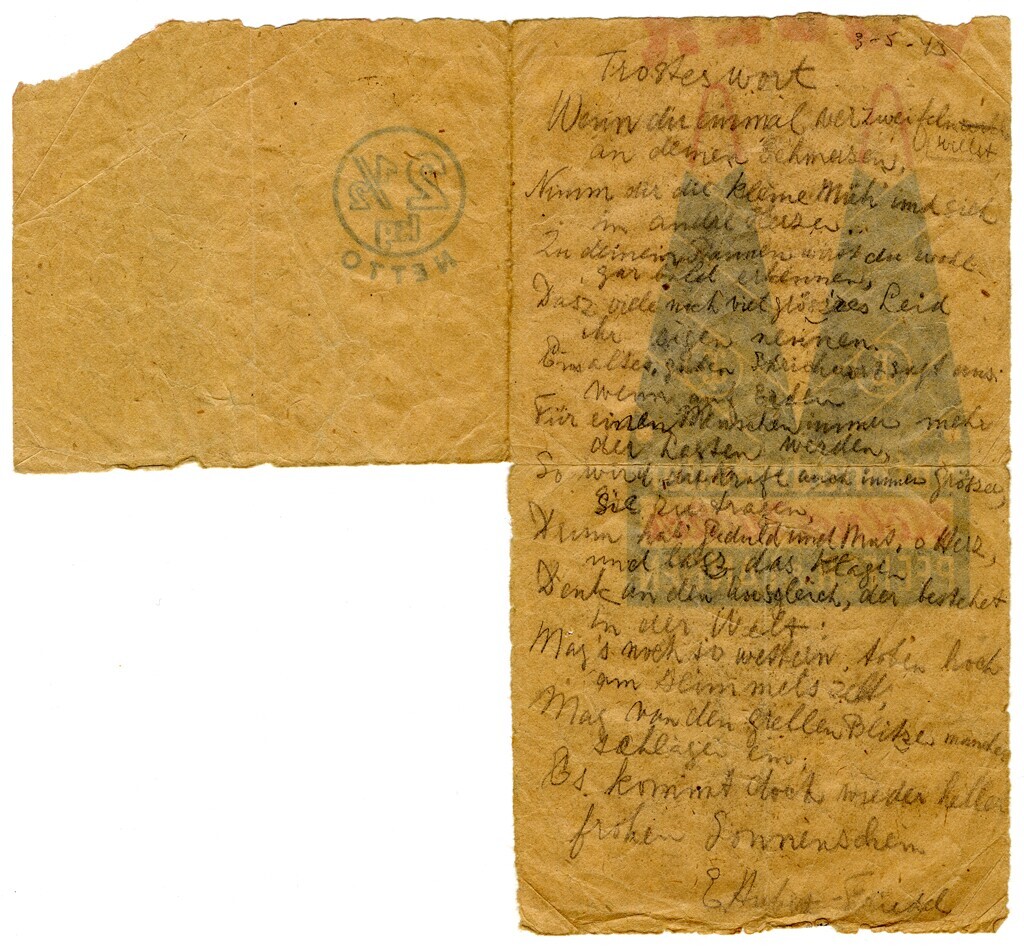 3-5-43
Trosteswort
Wenn du einmal verzweifeln willst
an deinen Schmerzen,
Nimm dir die kleine Müh und sieh
in andre Herzen..
Zu deinem Staunen wirst du wohl
gar bald erkennen,
Dasz viele noch viel größzres Leid
ihr eigen nennen.
Ein altes, gutes Sprichwort sagt uns:
Wenn auf Erden
Für einen Menschen immer mehr
der Lasten werden,
So wird die Kraft auch immer grösser,
Sie zu tragen,
Drum hab' Geduld und Mut, o Herz,
und lasz das Klagen
Denk an den Ausgleich, der bestehet
in der Welt:
Mag's noch so wettern, toben hoch
am Himmelszelt,
Mag von den grellen Blitzen mancher
schlagen ein,
Es kommt doch wieder heller
frohen Sonnenschein
E
2 1/2
kg
NETTO